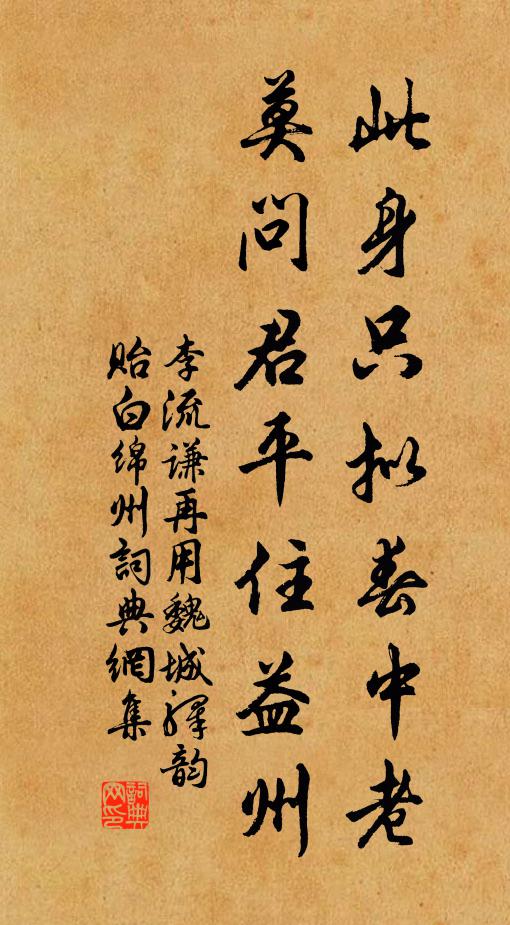 此身只拟春中老
莫问君平住益州
李流谦再用魏城驿韵
贻白绵州詞典網集
詞典网印